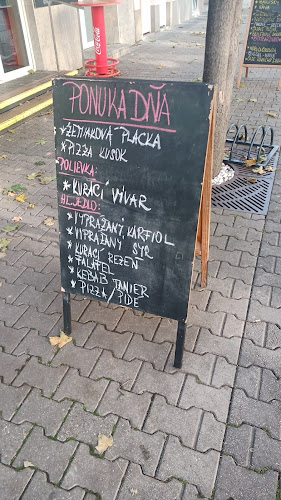 Coca-Cola
PONUKA DŇA
* ZEMIAKOVÁ PLACKA
* PIZZA KUSOK
POLIEVKA:
* KURACÍ VÝVAR
HL. JEDLO:
* VYPRÁŽANÝ KARFIOL
* VYPRÁŽANÝ SYR
* KURACÍ REZEŇ
* FALAFEL
* KEBAB TANIER
* PIZZA / PIDE